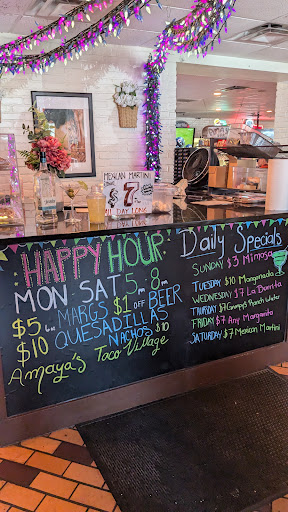 MEXICAN MARTINI
$7
ALL DAY LONG
HAPPY HOUR
MON SAT 5PM 8PM
$5 MARGS $1 OFF BEER
$10 QUESADILLAS
NACHOS $10
Amaya's Taco Village
Daily Specials
SUNDAY $3 Mimosa
TUESDAY $10 Mangonada
WEDNESDAY $7 La Burrita
THURSDAY $7 Gramps Ranch Water
FRIDAY $7 Any Margarita
SATURDAY $7 Mexican Martini